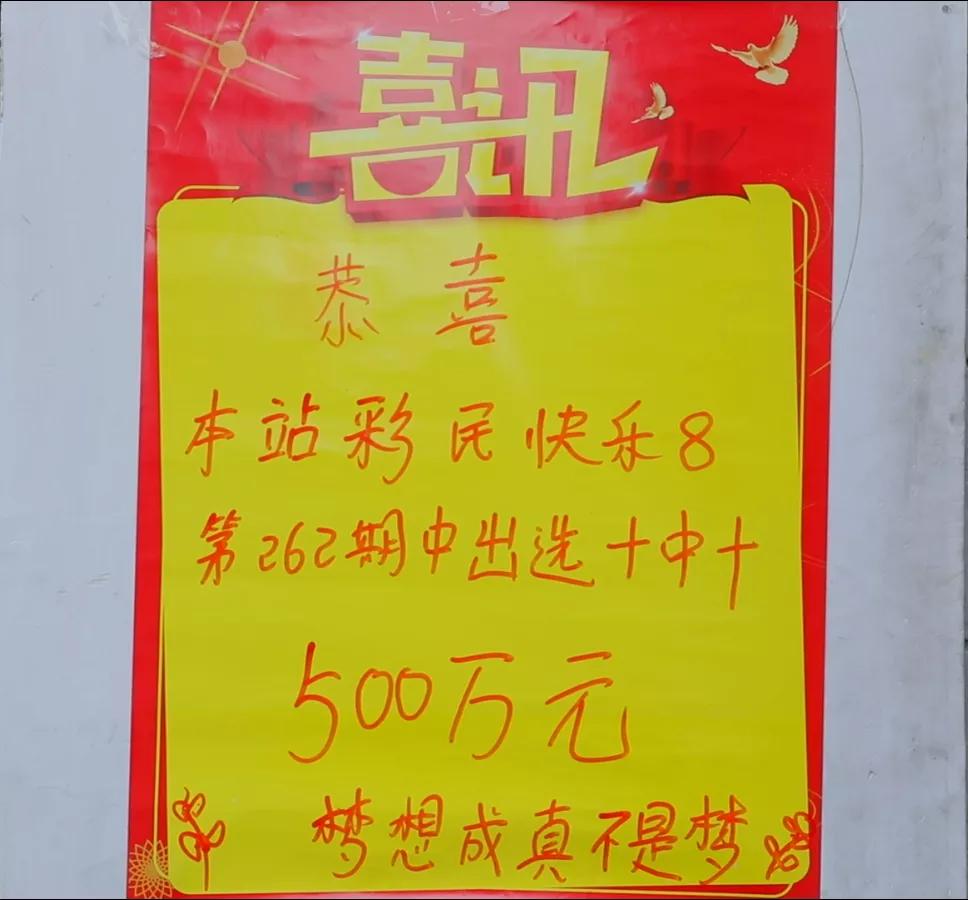 喜讯
恭喜
本站彩民快乐8
第262期中出选十中十
500万元
梦想成真不是梦